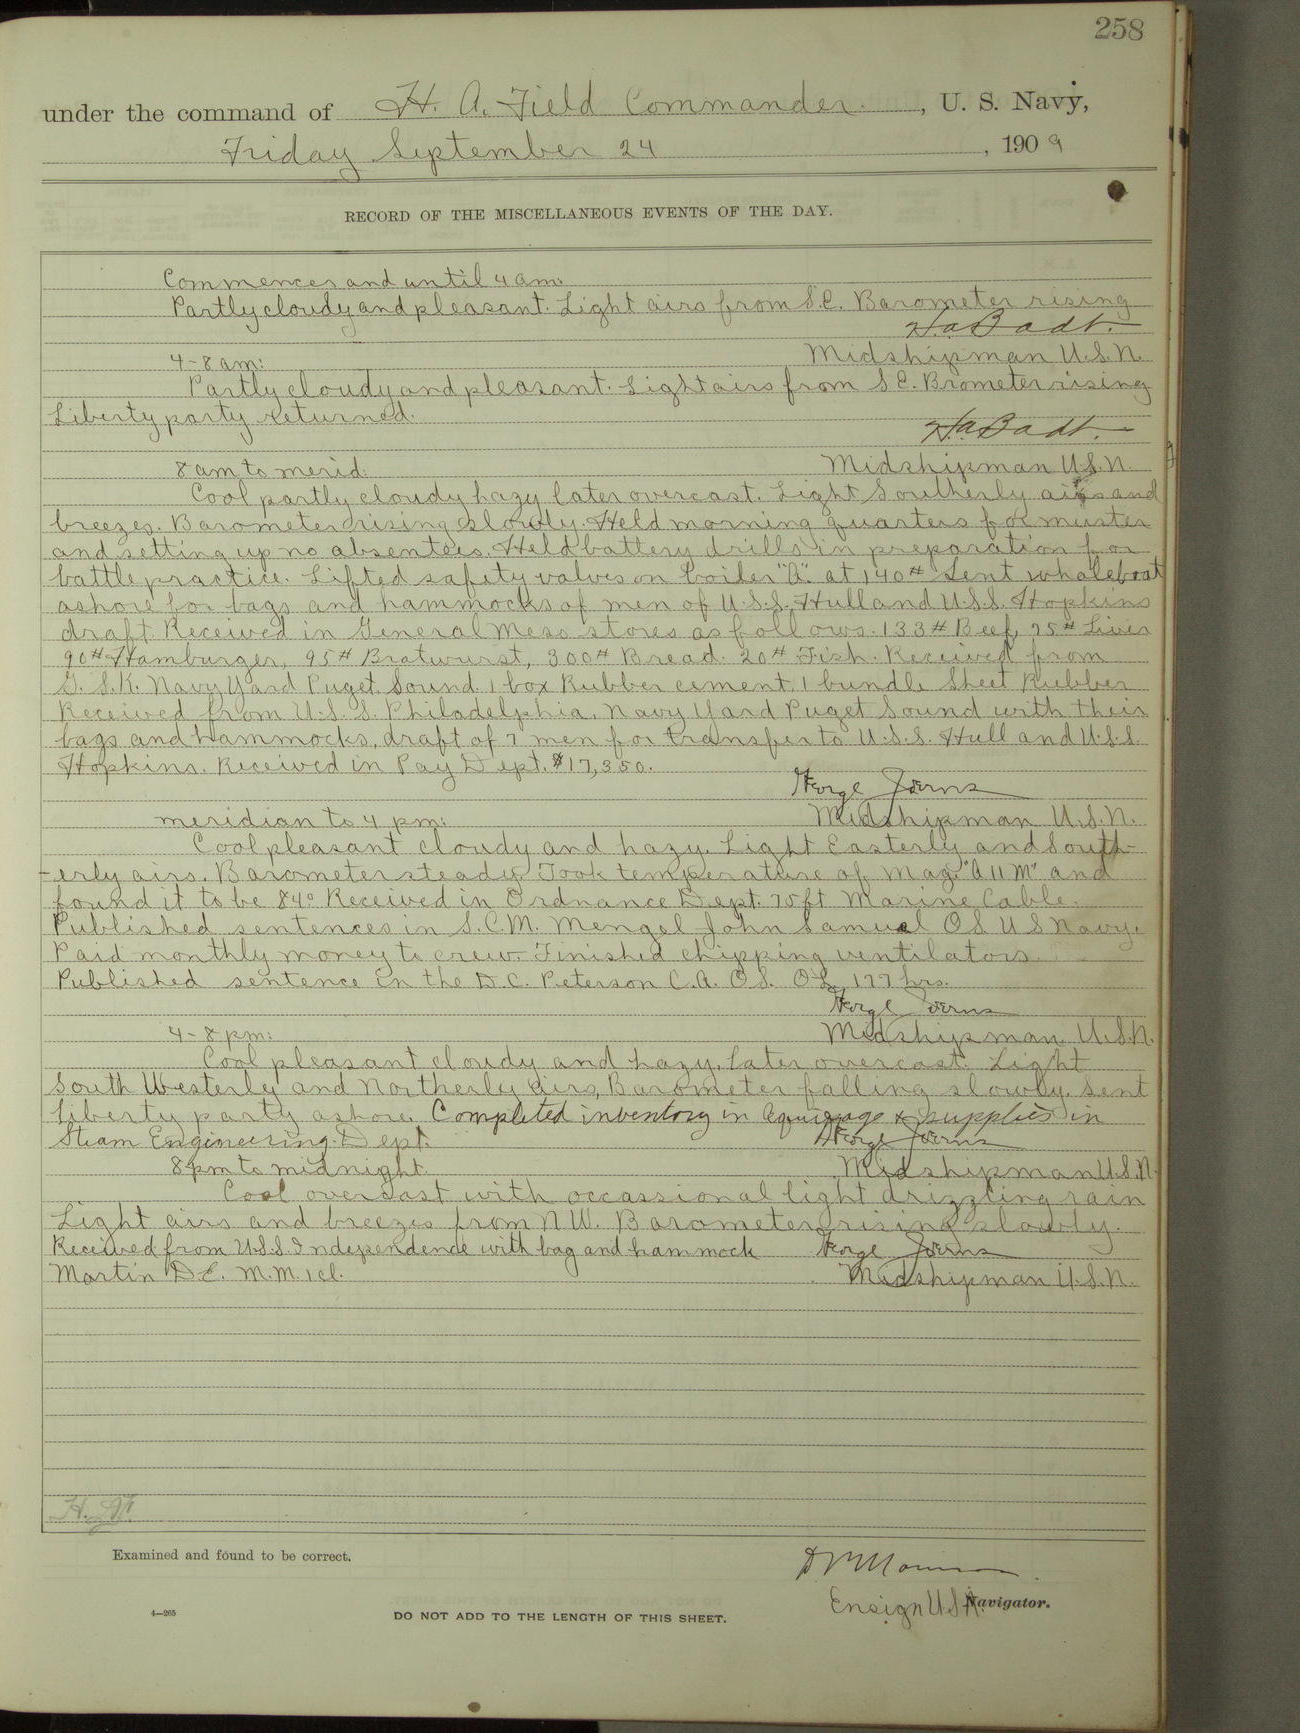 258
under the command of H. A. Field Commander , U. S. Navy,
Friday September 24 , 1909
RECORD OF THE MISCELLANEOUS EVENTS OF THE DAY.
Commences and until 4 am:
Partly cloudy and pleasant. Light airs from S.E. Barometer rising
H.a. Badt.
Midshipman U.S.N.
4-8 am:
Partly cloudy and pleasant. Light airs from S E. Brometer rising
Liberty party returned.
H.a. Badt.
Midshipman U.S.N.
8 am to merid:
Cool partly cloudy hazy later overcast. Light Southerly airs and
breezes. Barometer rising slowly. Held morning quarters for muster
and setting up no absentees. Held battery drills in preparation for
battle practice. Lifted safety valves on boiler "A". at 140# Sent whaleboat
ashore for bags and hammocks of men of U.S.S. Hull and U.S.S. Hopkins
draft. Received in General Mess stores as follows. 133# Beef, 75# Liver
90# Hamburger, 95# Bratwurst, 300# Bread. 20# Fish. Received from
G. S.K. Navy Yard Puget Sound. 1 box Rubber cement. 1 bundle Sheet Rubber
Received from U.S.S. Philadelphia, Navy Yard Puget Sound with their
bags and hammocks, draft of 7 men for transfer to U.S.S. Hull and U.S.S.
Hopkins. Received in Pay Dept. $17,350.
George Joerns
Midshipman U.S.N.
meridian to 4 pm:
Cool pleasant cloudy and hazy. Light Easterly and South-
-erly airs. Barometer steady. Took temperature of Mag. "A 11 M" and
found it to be 84° Received in Ordnance Dept. 70 ft Marine Cable.
Published sentences in S.C.M. Mengel John Samuel O.S. U S Navy.
Paid monthly money to crew. Finished chipping ventilators.
Published sentence in the D.C. Peterson C.A. O.S. OL, 177 hrs.
George Joerns
Midshipman U.S.N.
4-8 pm:
Cool pleasant cloudy and hazy, later overcast. Light
South Westerly and Northerly airs, Barometer falling slowly. Sent
liberty party ashore. Completed inventory in Equipage & supplies in
Steam Engineering Dept.
George Joerns
Midshipman U.S.N.
8 pm to midnight.
Cool overcast with occassional light drizzling rain
Light airs and breezes from N W. Barometer rising slowly.
Received from U.S.S. Independence with bag and hammock
George Joerns
Martin D E. M.M. 1 cl.
Midshipman U.S.N.
Examined and found to be correct.
Ensign U.S.N. Navigator.
4—265
DO NOT ADD TO THE LENGTH OF THIS SHEET.